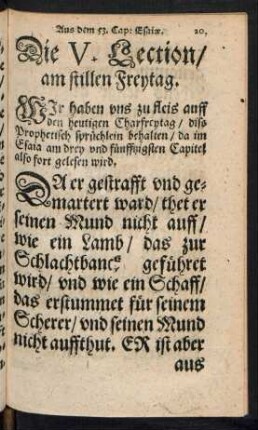 Aus dem 53. Cap: Esaiæ. 20.
Die V. Lection/
am stillen Freytag.
WIr haben vns zu fleis auff
den heutigen Charfreytag / diß
Prophetisch sprüchlein behalten / da im
Esaia am drey vnd fünfftzigsten Capitel
also fort gelesen wird.
DA er gestrafft vnd ge-
martert ward / thet er
seinen Mund nicht auff /
wie ein Lamb / das zur
Schlachtbanck geführet
wird / vnd wie ein Schaff /
das erstummet für seinem
Scherer / vnd seinen Mund
nicht auffthut. ER ist aber
aus